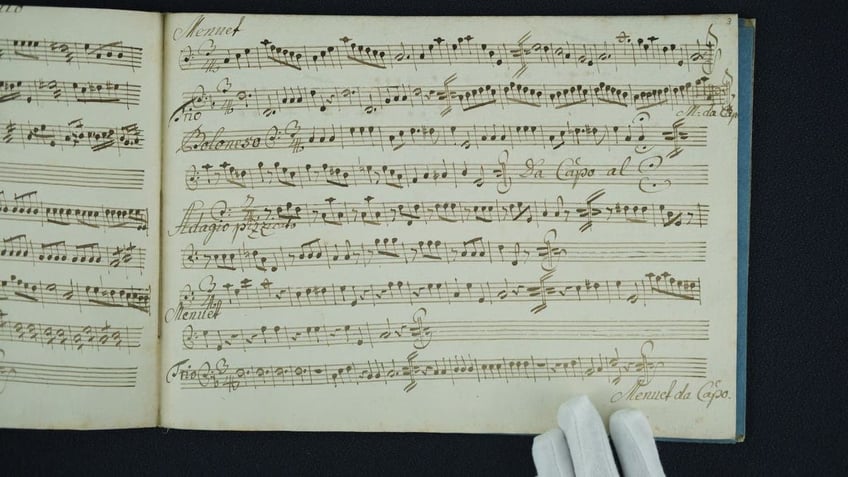 3
Menuet
Trio
M: da Capo
Poloneso
Da Capo al
Adagio pizzicato
Menuet
Trio
Menuet da Capo.